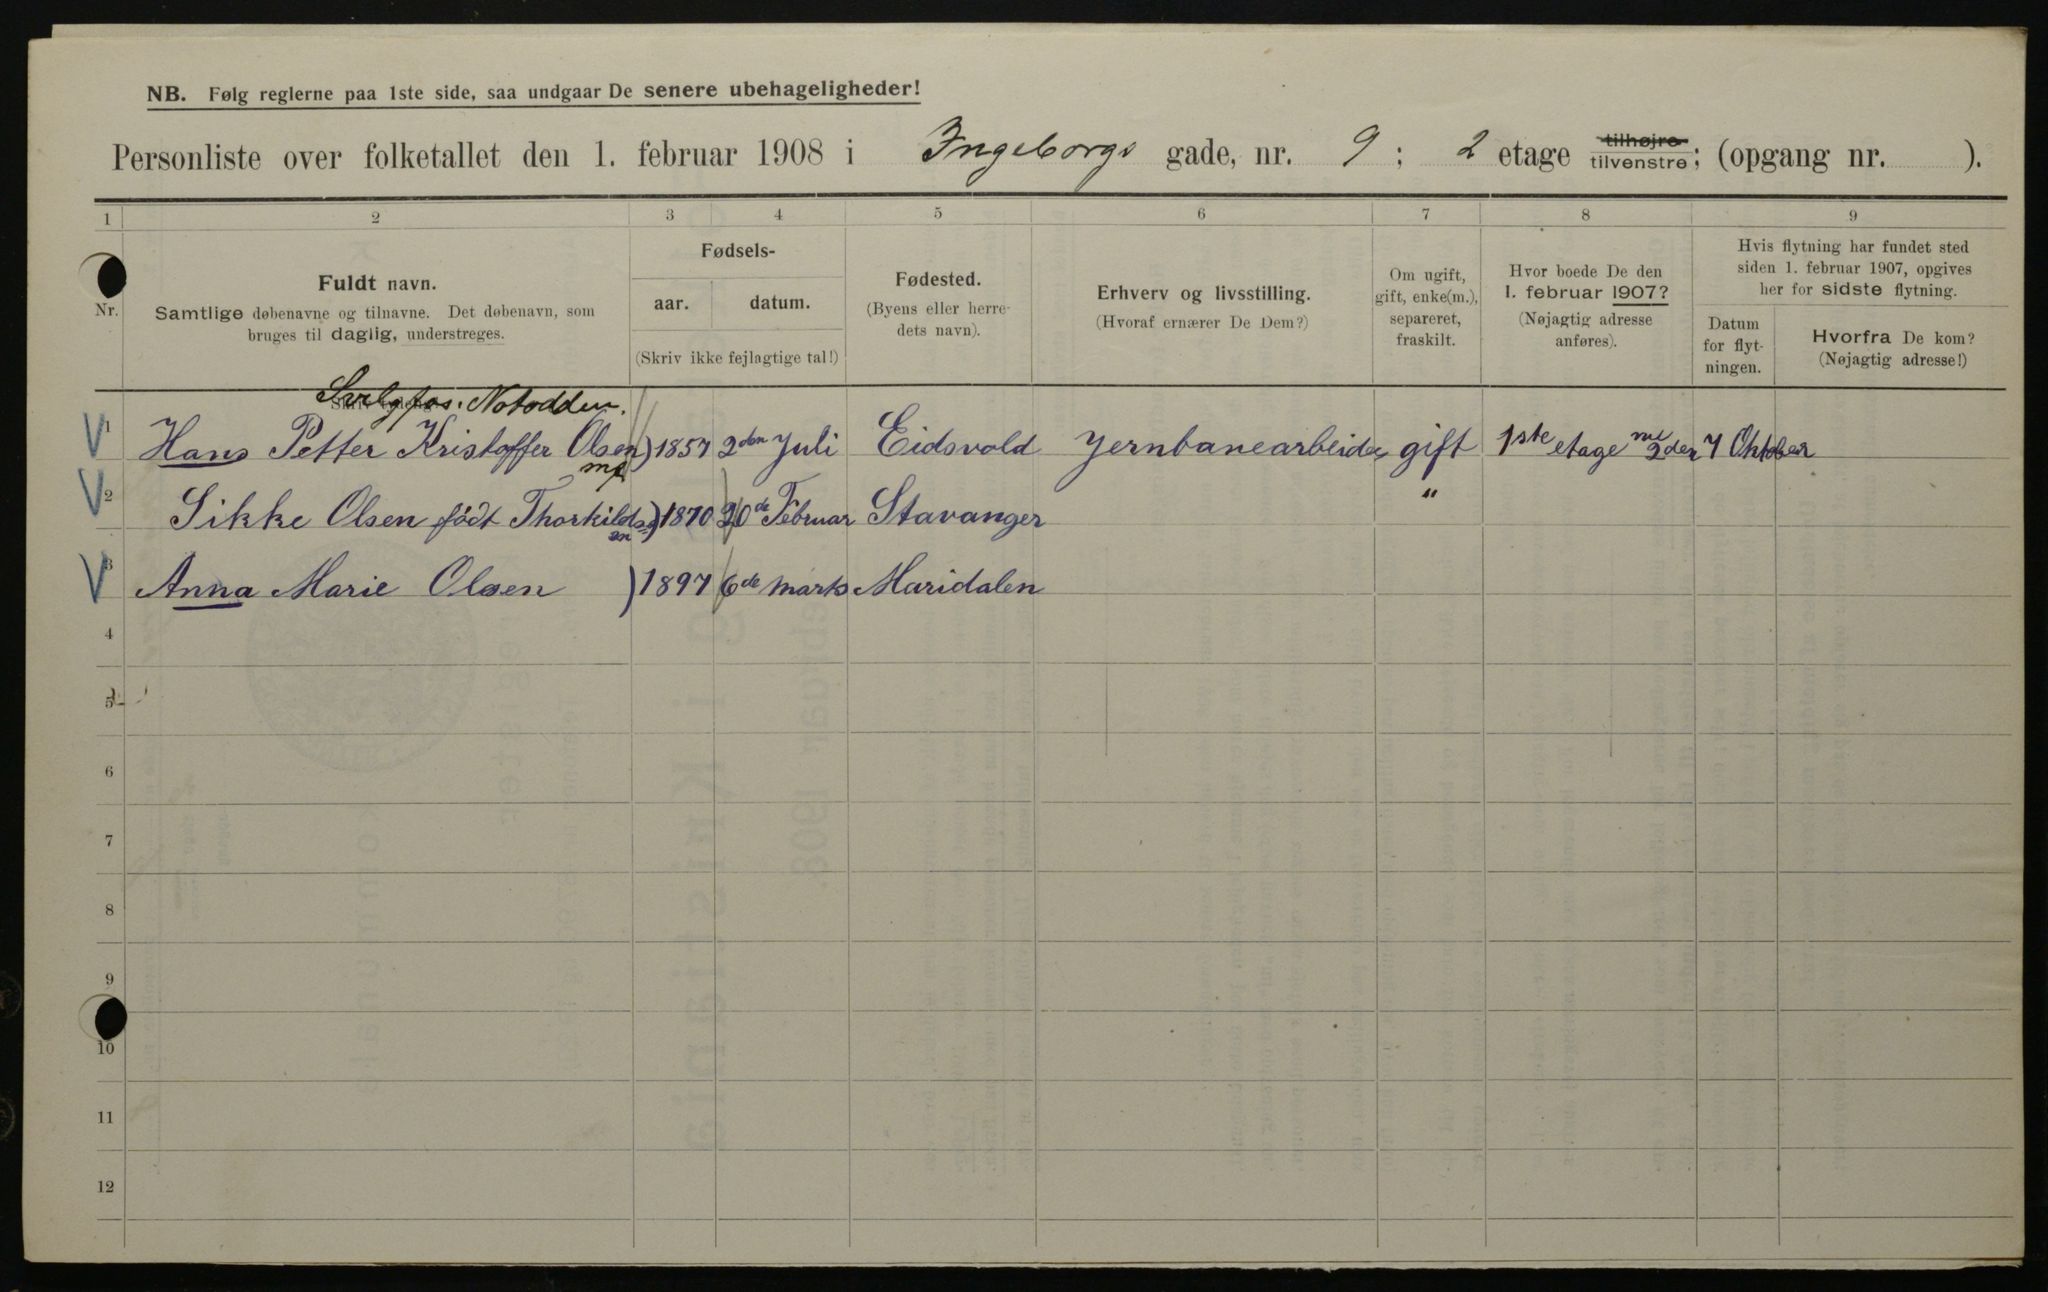 NB. Følg reglerne paa 1ste side, saa undgaar De senere ubehageligheder!
Personliste over folketallet den 1. februar 1908 i Ingeborgs gade, nr. 9; 2 etage tilhøjre tilvenstre; (opgang nr. ).
1 2 3 4 5 6 7 8 9
Nr.
Fuldt navn.
Samtlige døbenavne og tilnavne. Det døbenavn, som
bruges til daglig, understreges.
Fødsels-
aar. datum.
(Skriv ikke fejlagtige tal!)
Fødested.
(Byens eller herre-
dets navn).
Erhverv og livsstilling.
(Hvoraf ernærer De Dem?)
Om ugift,
gift, enke(m.),
separeret,
fraskilt.
Hvor boede De den
1. februar 1907?
(Nøjagtig adresse
anføres).
Hvis flytning har fundet sted
siden 1. februar 1907, opgives
her for sidste flytning.
Datum
for flyt-
ningen.
Hvorfra De kom?
(Nøjagtig adresse!)
Svelgfos. Notodden.
1 Hans Petter Kristoffer Olsen) 1857 2den Juli Eidsvold Jernbanearbeider gift 1ste etage 2den 7 Oktober
2 Sikke Olsen født Thorkildsen) 1870 20de Februar Stavanger "
3 Anna Marie Olsen ) 1897 6de marts Maridalen
4
5
6
7
8
9
10
11
12